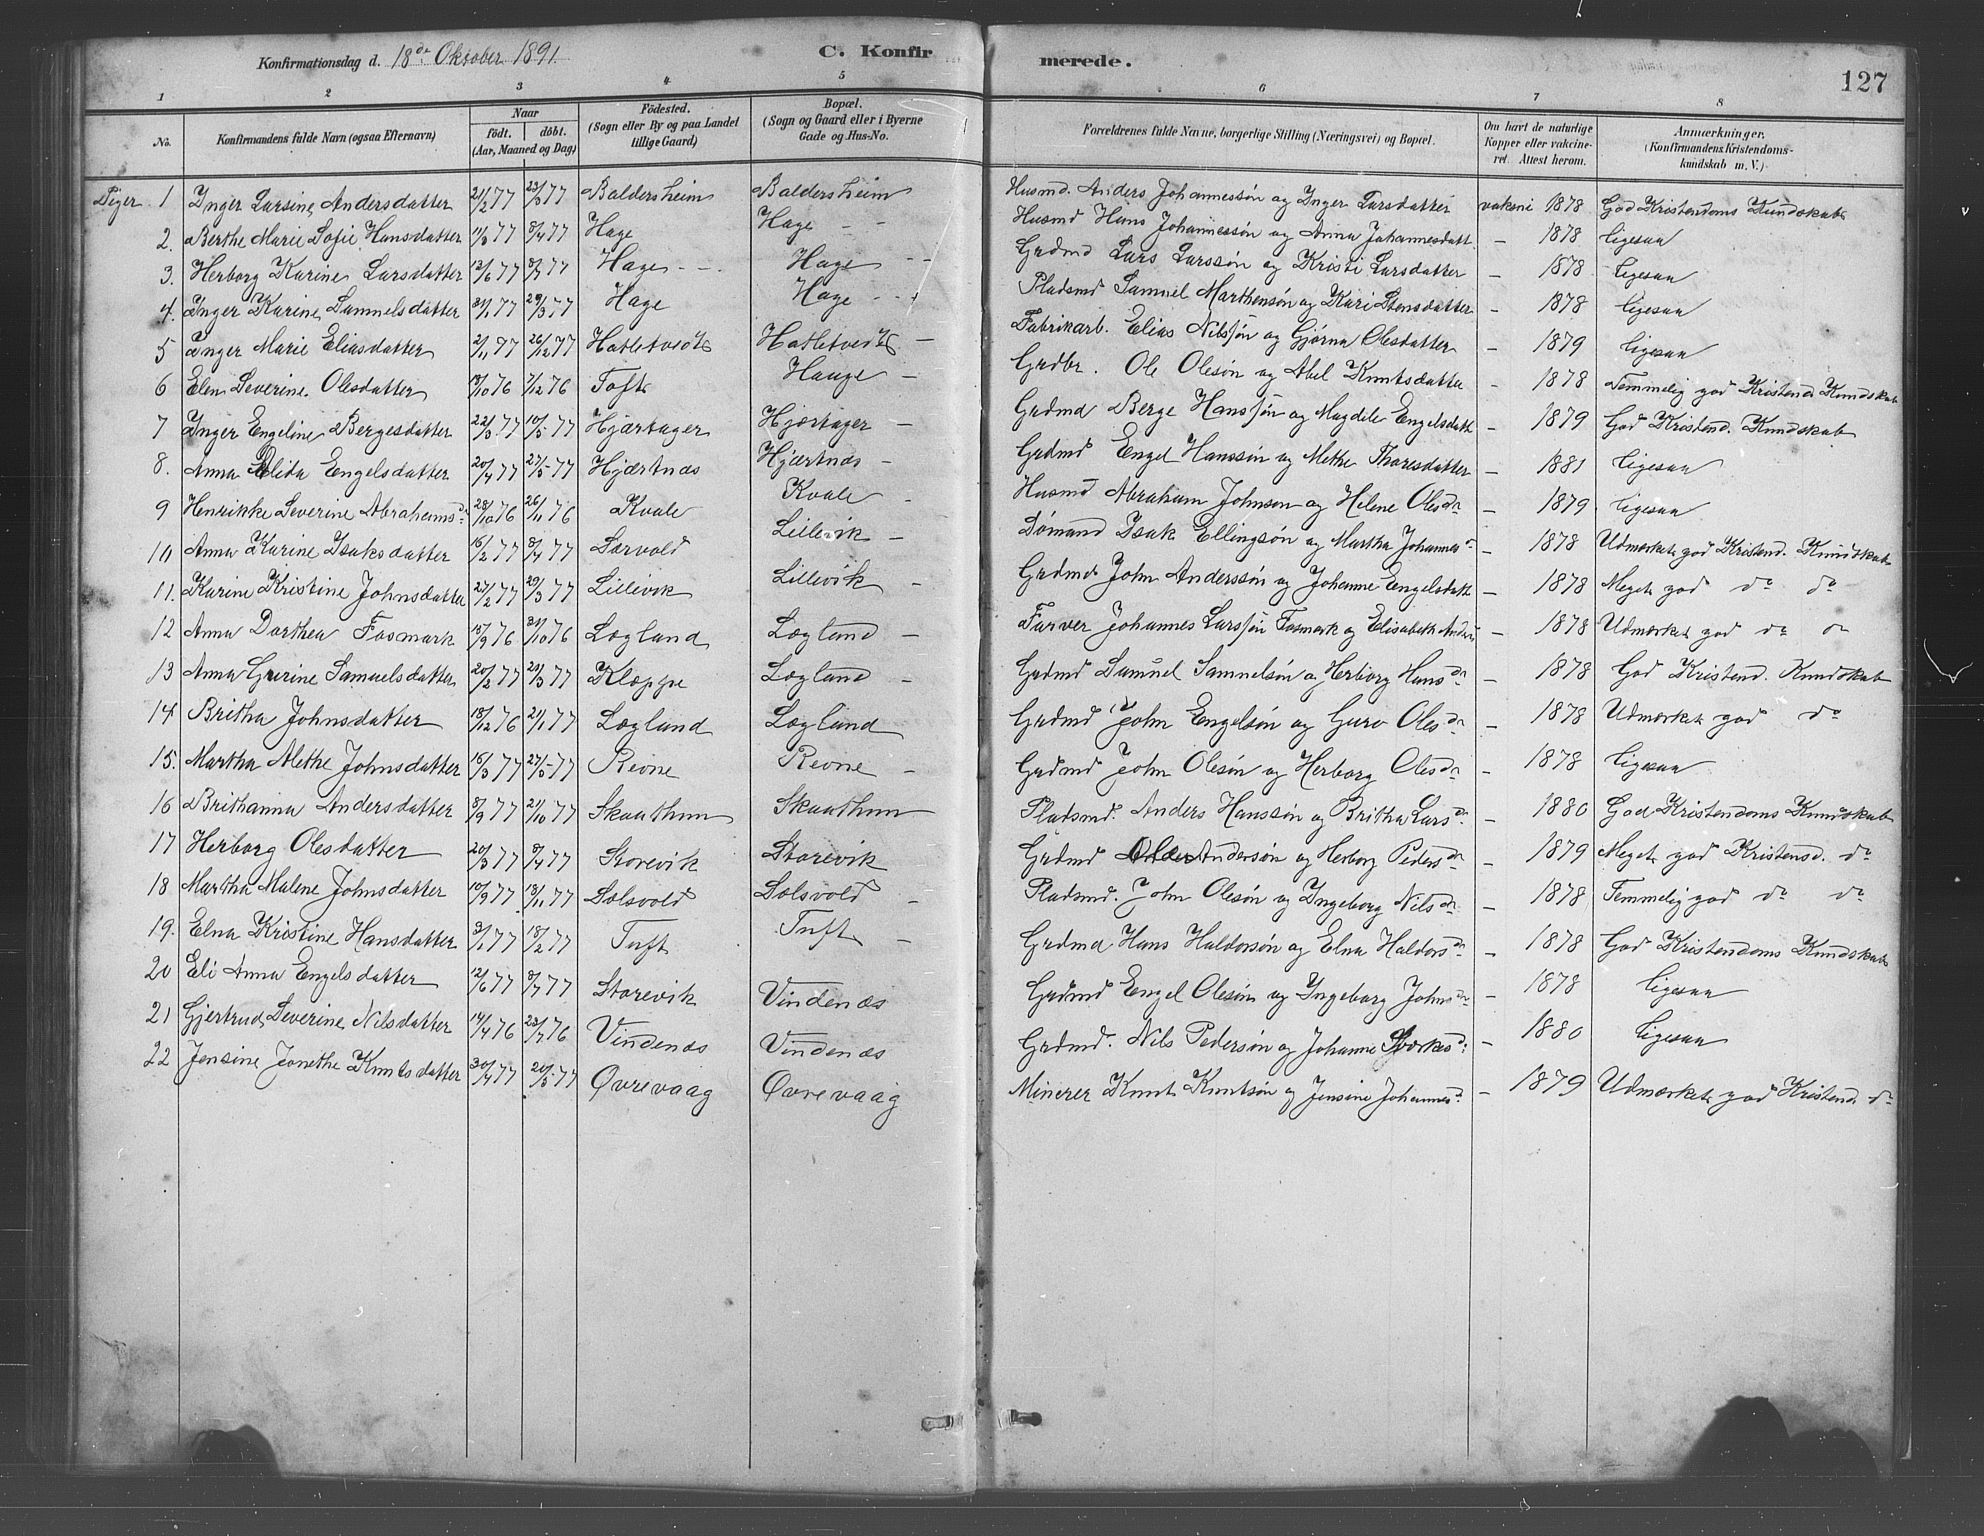 Konfirmationsdag d. 18de Oktober 1891.
C. Konfirmerede.
127
1 2 3 4 5 6 7 8
No.
Konfirmandens fulde Navn (ogsaa Efternavn)
Naar
født. døbt.
(Aar, Maaned og Dag)
Fødested.
(Sogn eller By og paa Landet
tillige Gaard)
Bopæl.
(Sogn og Gaard eller i Byerne
Gade og Hus-No.
Forældrenes fulde Navne, borgerlige Stilling (Næringsvei) og Bopæl.
Om havt de naturlige
Kopper eller vakcine-
ret. Attest herom.
Anmærkninger.
(Konfirmandens Kristendoms-
kundskab m. V.)
Piger 1 Inger Larsine Andersdatter 21/2 77 23/3 77 Baldersheim Baldersheim Husmd. Anders Johannessøn og Inger Larsdatter vaksni 1878 God Kristendoms Kundskab
2. Berthe Marie Sofie Hansdatter 11/3 77 8/4 77 Hage Hage - - Husmd Hans Johannessøn og Anna Johannesdatt. - 1878 Ligesaa
3. Herborg Karine Larsdatter 13/6 77 8/7 77 Hage - - Hage - - Grdmd Lars Larssøn og Kristi Larsdatter - 1878 Ligesaa
4. Inger Karine Samuelsdatter 31/1 77 29/3 77 Hage Hage - - Pladsmd Samuel Marthensøn og Kari Stensdatter - 1878 Ligesaa
5 Inger Marie Eliasdatter 2/11 77 26/12 77 Hatletvedt Hatletvedt - Fabrikarb. Elias Nilssøn og Gjørna Olesdatter - 1879 Ligesaa
6 Elen Severine Olesdatter 18/10 76 7/12 76 Toft Hauge - Grdbr. Ole Olesøn og Abel Knutsdatter - 1878 Temmelig god Kristend. Kundskab
7 Inger Engeline Bergesdatter 22/3 77 10/5 77 Hjærtager Hjærtager - Grdmd Berge Hanssøn og Magdele Engelsdatt - 1879 God Kristend. Kundskab
8. Anna Elida Engelsdatter 20/4 77 27/5 77 Hjærtnæs Hjærtnæs - Grdmd Engel Hanssøn og Methe Thoresdatter - 1881 Ligesaa
9 Henrikke Severine Abrahamsd: 28/10 76 26/11 76 Kvale Kvale - Husmd Abraham Johnson og Helene Olesdr - 1879 Ligesaa
10 Anna Karine Isaksdatter 16/2 77 8/4 77 Særvold Lillevik - Sømand Isak Ellingsøn og Martha Johannesd - 1878 Udmærket god Kristend. Kundskab
11. Karine Kristine Johnsdatter 27/2 77 29/3 77 Lillevik Lillevik - Grdmd John Anderssøn og Johanne Engelsdatt - 1878 Meget god do do
12 Anna Dorthea Fosmark 15/9 76 31/10 76 Lægland Lægland - Farver Johannes Larssøn Fosmark og Elisabeth Anders - 1878 Udmærket god do do
13 Anna Gurine Samuelsdatter 20/2 77 21/3 77 Kleppe Lægland - Grdmd Samuel Samuelsøn og Herborg Hansdr - 1878 God Kristend. Kundskab
14 Britha Johnsdatter 18/12 76 21/1 77 Lægland Lægland Grdmd John Engelsøn og Guro Olesdr - 1878 Udmærket god do
15. Martha Methe Johnsdatter 16/3 77 27/5 77 Revne Revne - Grdmd John Olesøn og Herborg Olesdr - 1878 Ligesaa
16 Brithanna Andersdatter 8/9 77 21/10 77 Skaathun Skaathun Pladsmd. Anders Hanssøn og Britha Larsdr. - 1880 God Kristendoms Kundskab
17 Herborg Olesdatter 20/3 77 8/4 77 Storevik Storevik Grdmd Ole Andersøn og Herborg Pedersdr - 1879 Meget god Kristend. do
18 Martha Malene Johnsdatter 10/9 77 18/11 77 Solsvold Solsvold - Pladsmd. John Olesøn og Ingeborg Nilsdr - 1878 Temmelig god do do
19. Elna Kristine Hansdatter 3/1 77 18/2 77 Tuft Tuft - Grdmd Hans Haldorsøn og Elna Haldorsdr - 1878 God Kristendoms Kundskab
20 Eli Anna Engelsdatter 12/6 77 8/7 77 Storevik Vindenæs Grdmd Engel Olesøn og Ingeborg Johnsdr - 1878 Ligesaa
21 Gjertrud Severine Nilsdatter 14/4 76 23/7 76 Vindenæs Vindenæs Grdmd. Nils Pedersøn og Johanne - 1880 Ligesaa
22 Jensine Jonethe Knutsdatter 30/4 77 20/5 77 Øvrevaag Øvrevaag Minerer Knut Knutsøn og Jensine Johannesd. - 1879 Udmærket god Kristend. do